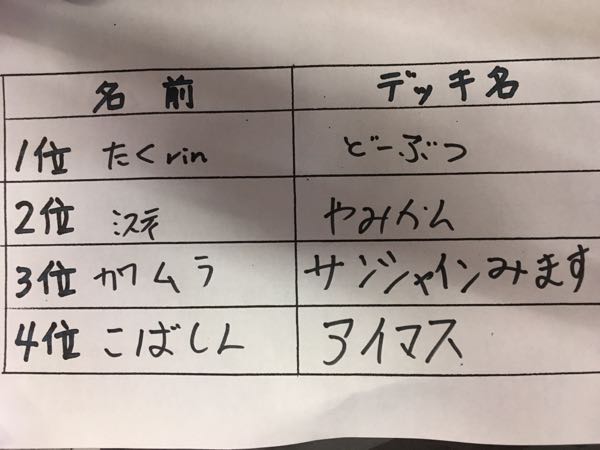 名前 デッキ名
1位 たくrin どーぶつ
2位 ミステ やみかん
3位 カワムラ サンシャインみます
4位 こばしん アイマス